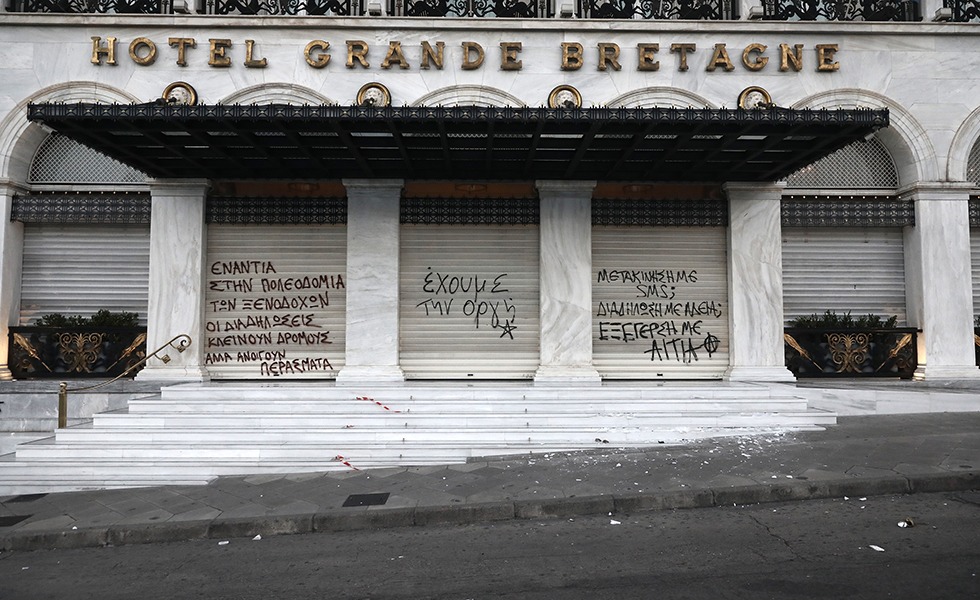 HOTEL GRANDE BRETAGNE
ΕΝΑΝΤΙΑ
ΣΤΗΝ ΠΟΛΕΟΔΟΜΙΑ
ΤΩΝ ΞΕΝΟΔΟΧΩΝ
ΟΙ ΔΙΑΔΗΛΩΣΕΙΣ
ΚΛΕΙΝΟΥΝ ΔΡΟΜΟΥΣ
ΑΜΑ ΑΝΟΙΓΟΥΝ
ΠΕΡΑΣΜΑΤΑ
έχουμε
την οργή
ΜΕΤΑΚΙΝΗΣΗ ΜΕ
SMS;
ΔΙΑΔΗΛΩΣΗ ΜΕ ΑΔΕΙΑ;
ΕΞΕΓΕΡΣΗ ΜΕ
ΑΙΤΙΑ